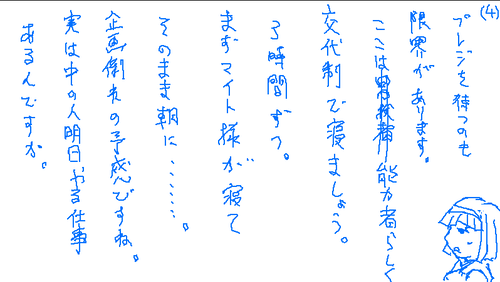 (4)
プレジを待つのも
限界があります。
ここは能力者らしく
交代制で寝ましょう。
3時間ずつ。
まずマイト様が寝て
そのまま朝に……。
企画倒れの予感ですね。
実は中の人明日やる仕事
あるんですが。